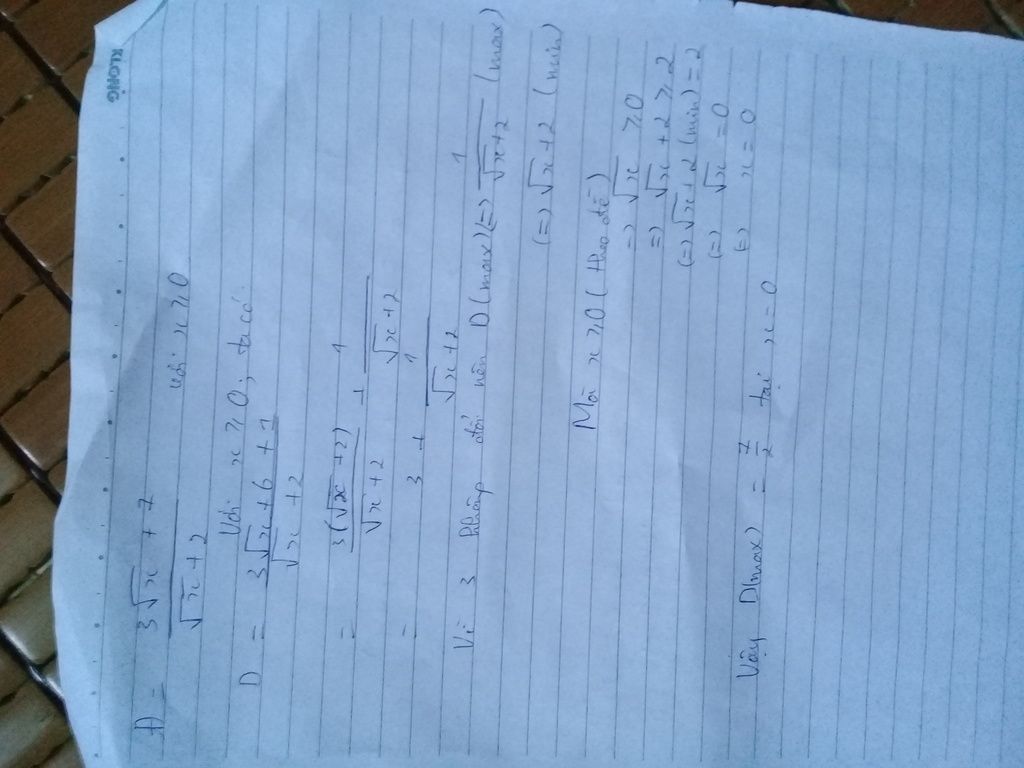 KLONG
A = 3√x + 7 / √x + 2 với x ≥ 0
Với x ≥ 0, ta có:
D = 3√x + 6 + 1 / √x + 2
= 3(√x + 2) / √x + 2 + 1 / √x + 2
= 3 + 1 / √x + 2
Vì 3 không đổi nên D(max) (=) 1 / √x + 2 (max)
(=) √x + 2 (min)
Mà x ≥ 0 (theo đề)
=) √x ≥ 0
=) √x + 2 ≥ 2
(=) √x + 2 (min) = 2
(=) √x = 0
(=) x = 0
Vậy D(max) = 7 / 2 tại x = 0